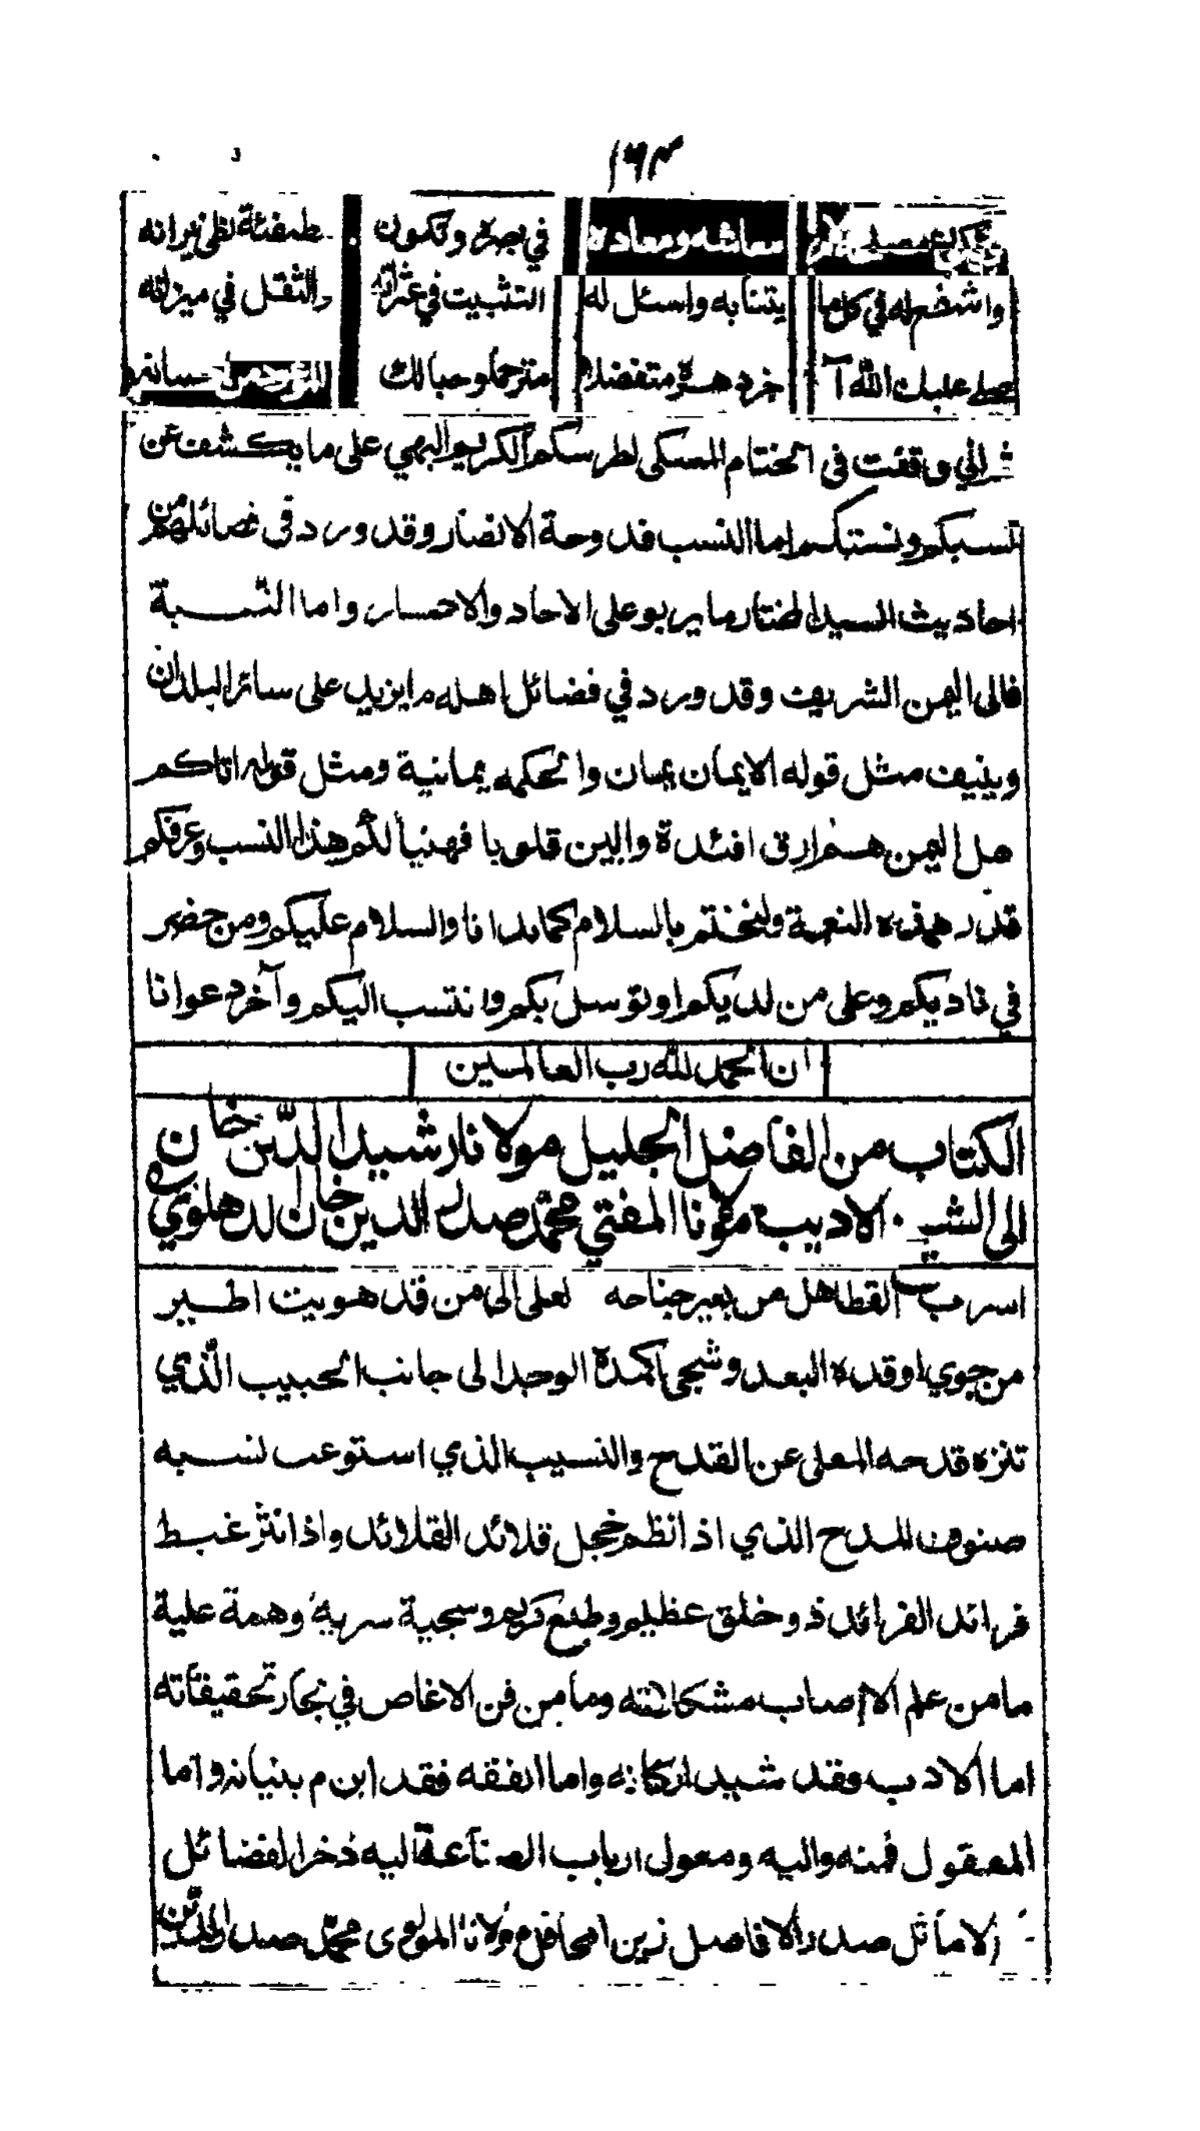 ١٦٣
معاشه ومعاده في بصره وتكون مطفئة لظى نيرانه
واشفع له في كل ما يتنابه واسئل له التثبيت في عثراته والثقل في ميزانه
صلى عليك الله آخر دهره متفضلا مترحما وحبا لك
ثم اني وقفت في الختام المسكى لطرسكم الكريم البهي على ما يكشف عن
نسبكم ونسبتكم اما النسب فدوحة الانصار وقد ورد في فضائلهم من
احاديث السيد المختار ما يربو على الاحاد والاحسار واما النسبة
فالى اليمن الشريف وقد ورد في فضائل اهله ما يزيد على سائر البلدان
وينيف مثل قوله الايمان يمان والحكمه يمانية ومثل قوله اتاكم
اهل اليمن هم ارق افئدة والين قلوبا فهنيأ لكم هذا النسب وعرفكم
قدر هذه النعمة ولنختم بالسلام كما بدانا والسلام عليكم ومن حضر
في ناديكم وعلى من لديكم او توسل بكم وانتسب اليكم وآخر دعوانا
ان الحمد لله رب العالمين
الكتاب من الفاضل الجليل مولانا رشيد الدين خان
الى الشيخ الاديب مولانا المفتي محمد صدر الدين خان الدهلوي
اسرب القطا هل من يعير جناحه لعلي الى من قد هويت اطير
من جوي اوقده البعد وشجى اكمده الوجد الى جانب الحبيب الذي
تنزه قدحه المعلى عن القدح والنسيب الذي استوعب نسبه
صنوف المدح الذي اذا نظم خجل قلائد القلائد واذا نثر غبط
فرائد الفرائد ذو خلق عظيم وطبع كريم وسجية سرية وهمة علية
ما من علم الا اصاب مشكلاته وما من فن الا غاص في بحار تحقيقاته
اما الادب فقد شيد اركانه واما الفقه فقد ابرم بنيانه واما
المعقول فمنه واليه ومعول ارباب الصناعة اليه ذخر الفضائل
الاماثل صدر الافاضل زين المحافل مولانا المولوى محمد صدر الدين